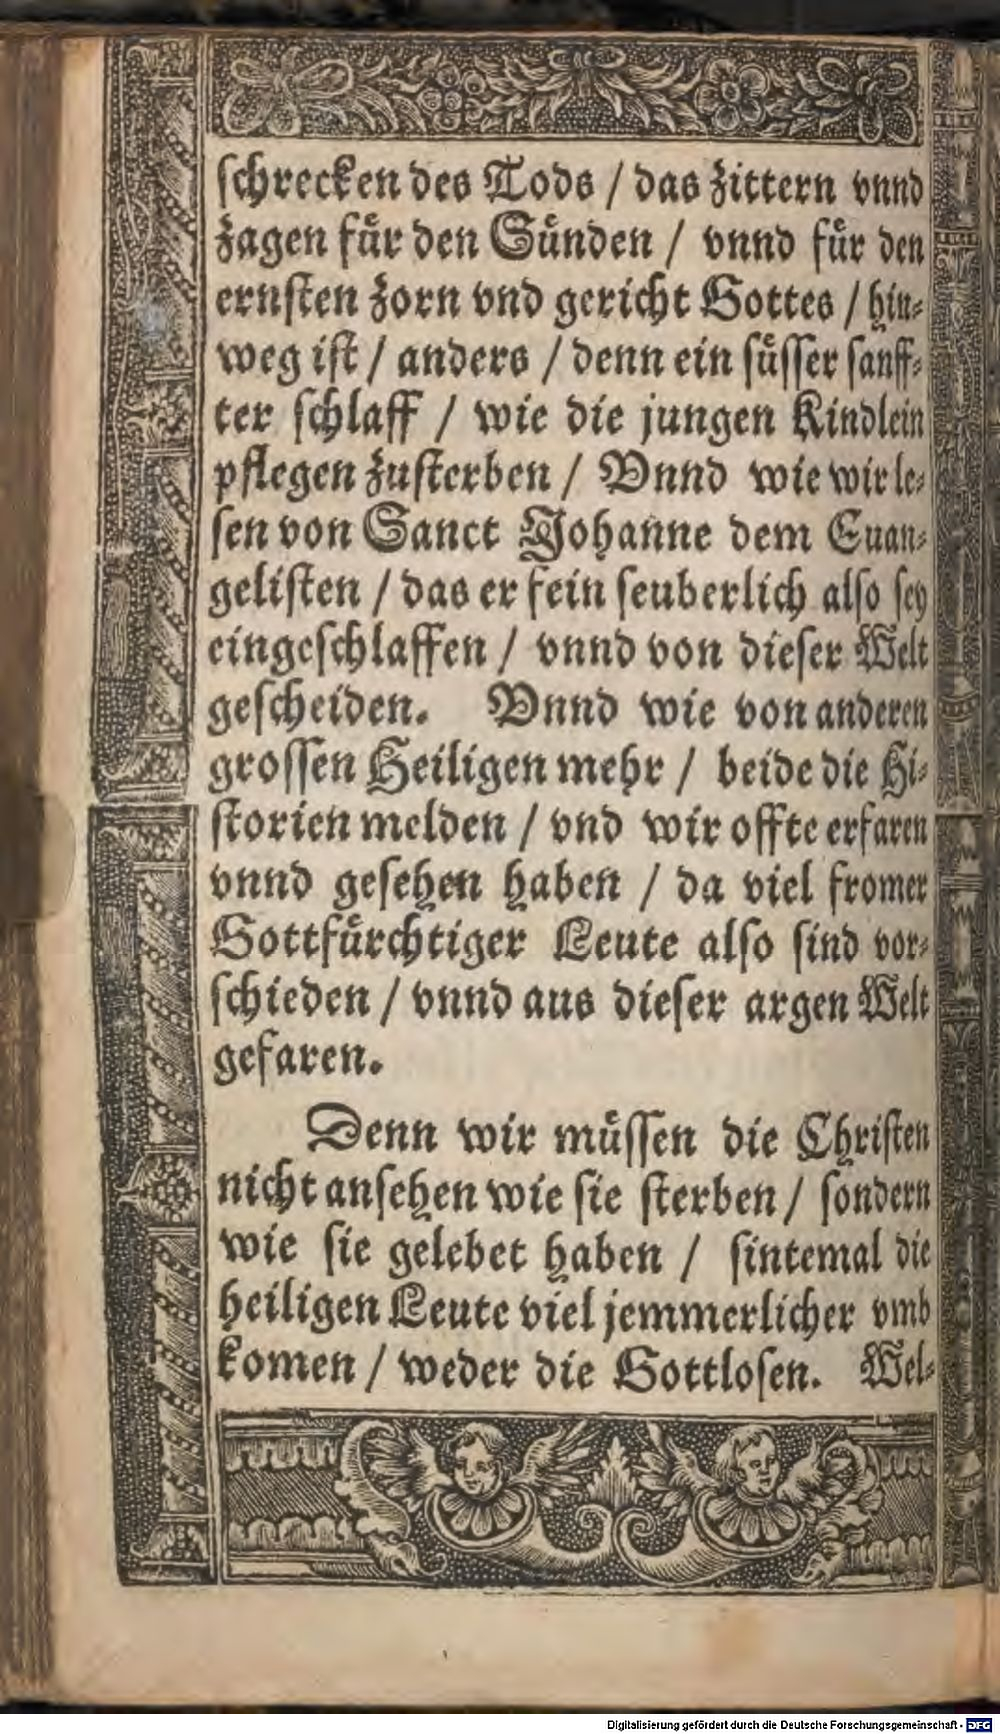 schrecken des Tods / das zittern vnnd
zagen fuͤr den Suͤnden / vnnd fuͤr den
ernsten zorn vnd gericht Gottes / hin⸗
weg ist / anders / denn ein suͤsser sanff⸗
ter schlaff / wie die jungen Kindlein
pflegen zusterben / Vnnd wie wir le⸗
sen von Sanct Johanne dem Euan⸗
gelisten / das er fein seuberlich also sey
eingeschlaffen / vnnd von dieser Welt
gescheiden. Vnnd wie von anderen
grossen Heiligen mehr / beide die Hi⸗
storien melden / vnd wir offte erfaren
vnnd gesehen haben / da viel fromer
Gottfuͤrchtiger Leute also sind vor⸗
schieden / vnnd aus dieser argen Welt
gefaren.
Denn wir muͤssen die Christen
nicht ansehen wie sie sterben / sondern
wie sie gelebet haben / sintemal die
heiligen Leute viel jemmerlicher vmb
komen / weder die Gottlosen. Wel⸗
Digitalisierung gefördert durch die Deutsche Forschungsgemeinschaft - DFG